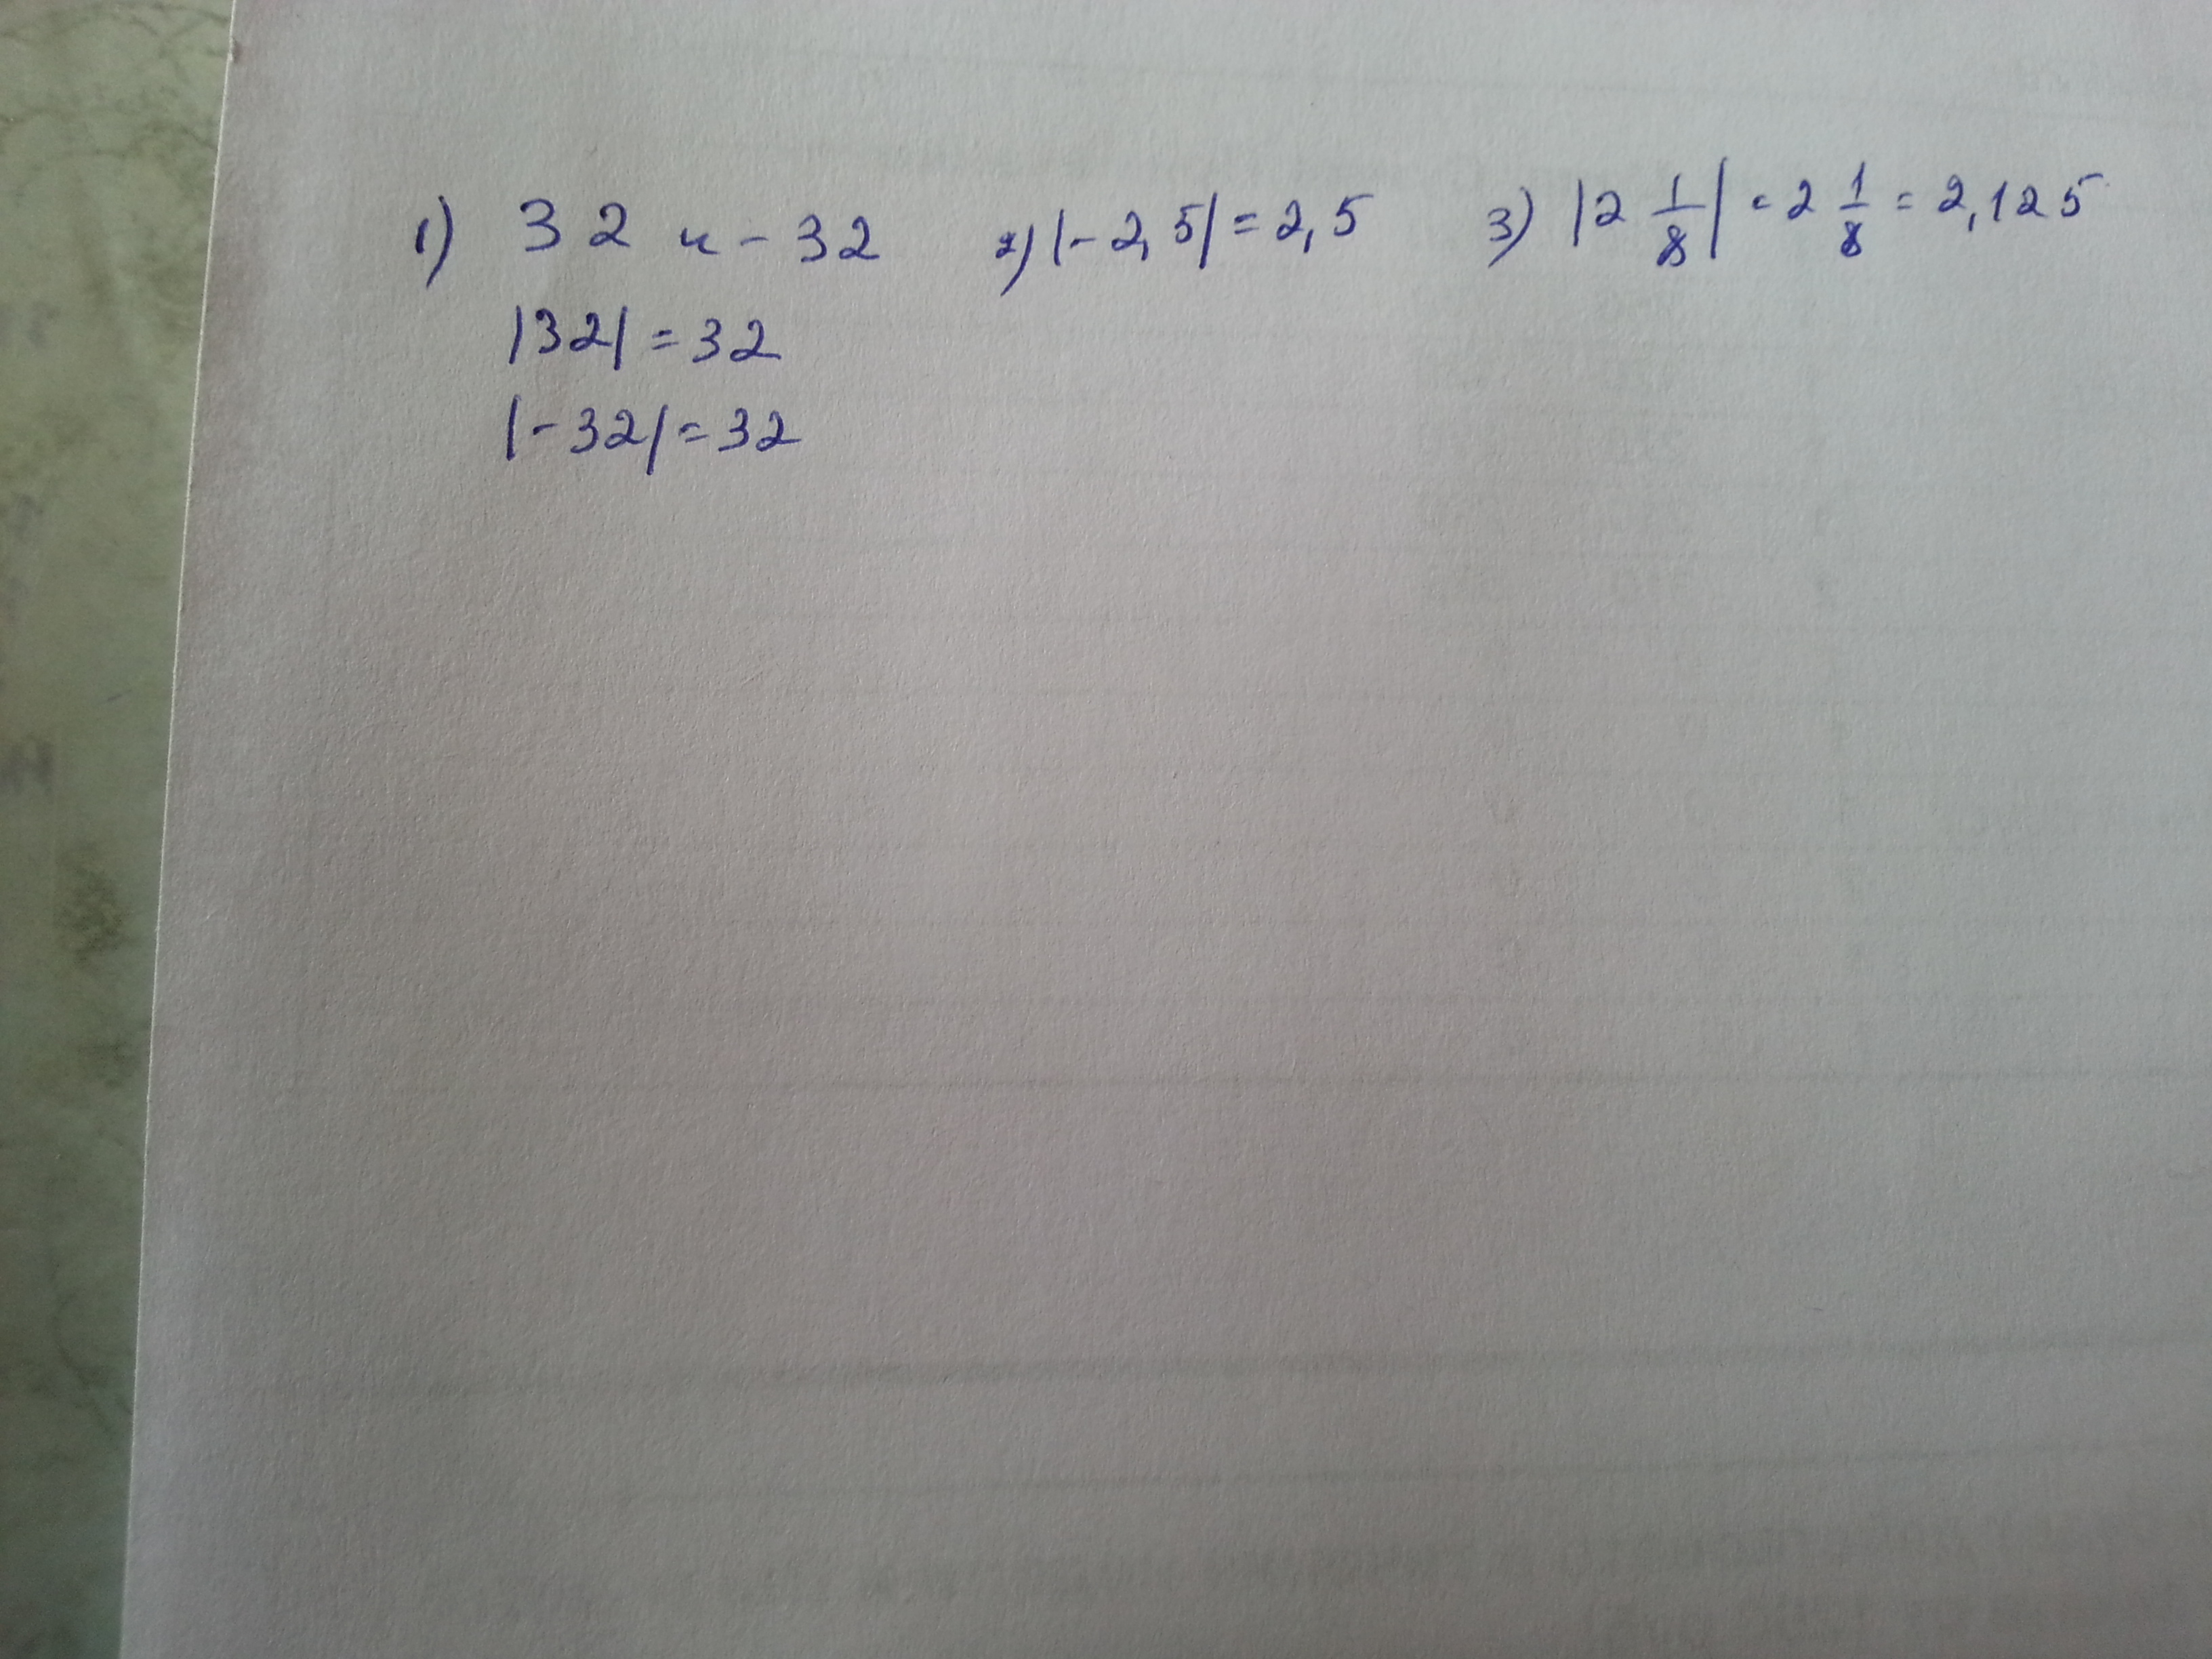 1) 32 и - 32 2) |-2,5| = 2,5 3) |2 1/8| = 2 1/8 = 2,125
|32| = 32
|-32| = 32